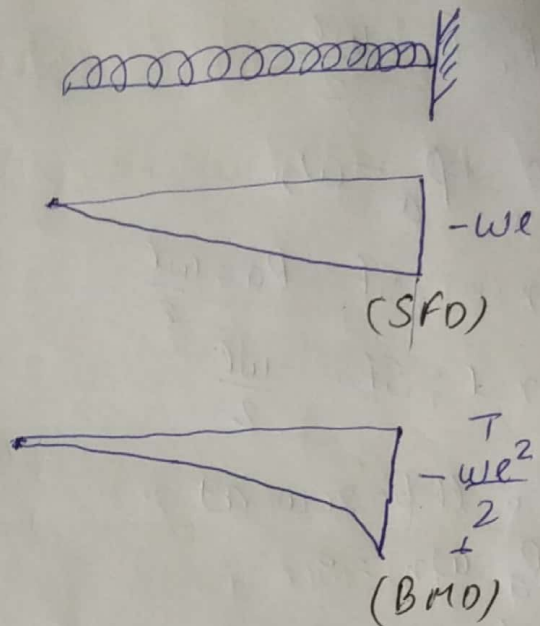 -wl
(SFD)
-wl²
2
(BMD)